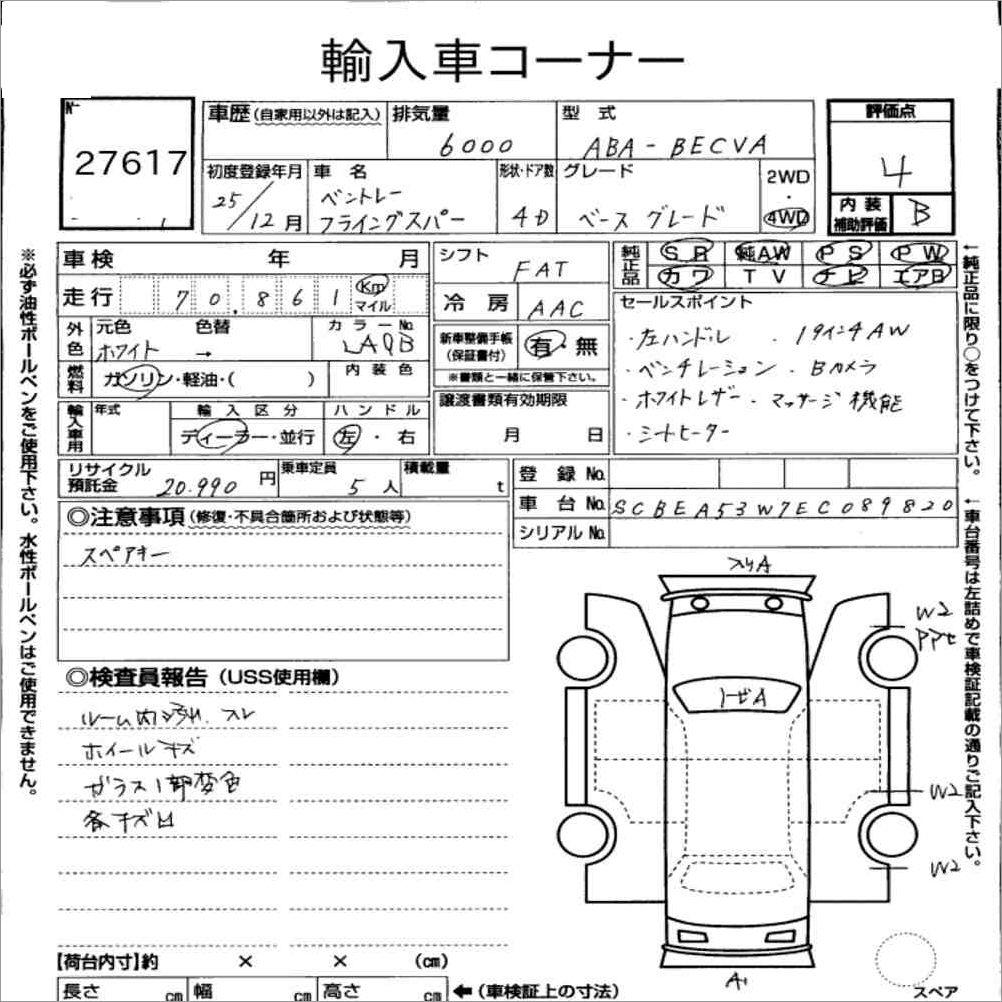 輸入車コーナー
№
27617
車歴(自家用以外は記入)
排気量
6000
型 式
ABA-BECVA
評価点
4
初度登録年月
25/12月
車 名
ベントレー
フライングスパー
形状・ドア数
4D
グレード
ベース グレード
2WD
・
4WD
内 装
補助評価
B
車検 年 月
走行 70,861 Km
マイル
外色
元色
ホワイト
色替
→
カラーNo.
LAQB
燃料
ガソリン・軽油・( )
内 装 色
輸入車用
年式
輸 入 区 分
ディーラー・並行
ハ ン ド ル
左・右
シフト
FAT
冷 房
AAC
新車整備手帳
(保証書付)
有・無
※書類と一緒に保管下さい。
譲渡書類有効期限
月 日
純正品
SR 純AW PS PW
カワ TV ナビ エアB
セールスポイント
・左ハンドル ・19インチAW
・ベンチレーション ・Bカメラ
・ホワイトレザー ・マッサージ機能
・シートヒーター
リサイクル
預託金
20.990円
乗車定員
5人
積載量
t
登 録 No.
車 台 No.
SCBEA53W7EC089820
シリアル No.
◎注意事項(修復・不具合箇所および状態等)
スペアキー
◎検査員報告(USS使用欄)
ルーム内汚れ、スレ
ホイールキズ
ガラス1部変色
各キズ凹
スリA
トビA
W2
W2
W2
A1
スペア
【荷台内寸】約 × × (cm)
長さ cm 幅 cm 高さ cm
←(車検証上の寸法)
※必ず油性ボールペンをご使用下さい。水性ボールペンはご使用できません。
←純正品に限り○をつけて下さい。
←車台番号は左詰めで車検証記載の通りご記入下さい。